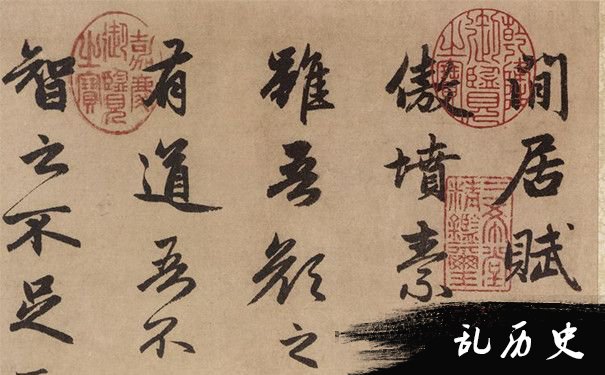 閒居賦
傲墳素
雖吾顏之
有道吾不
智之不足
乾隆御覽之寶
三希堂精鑑璽
嘉慶御覽之寶
乱历史